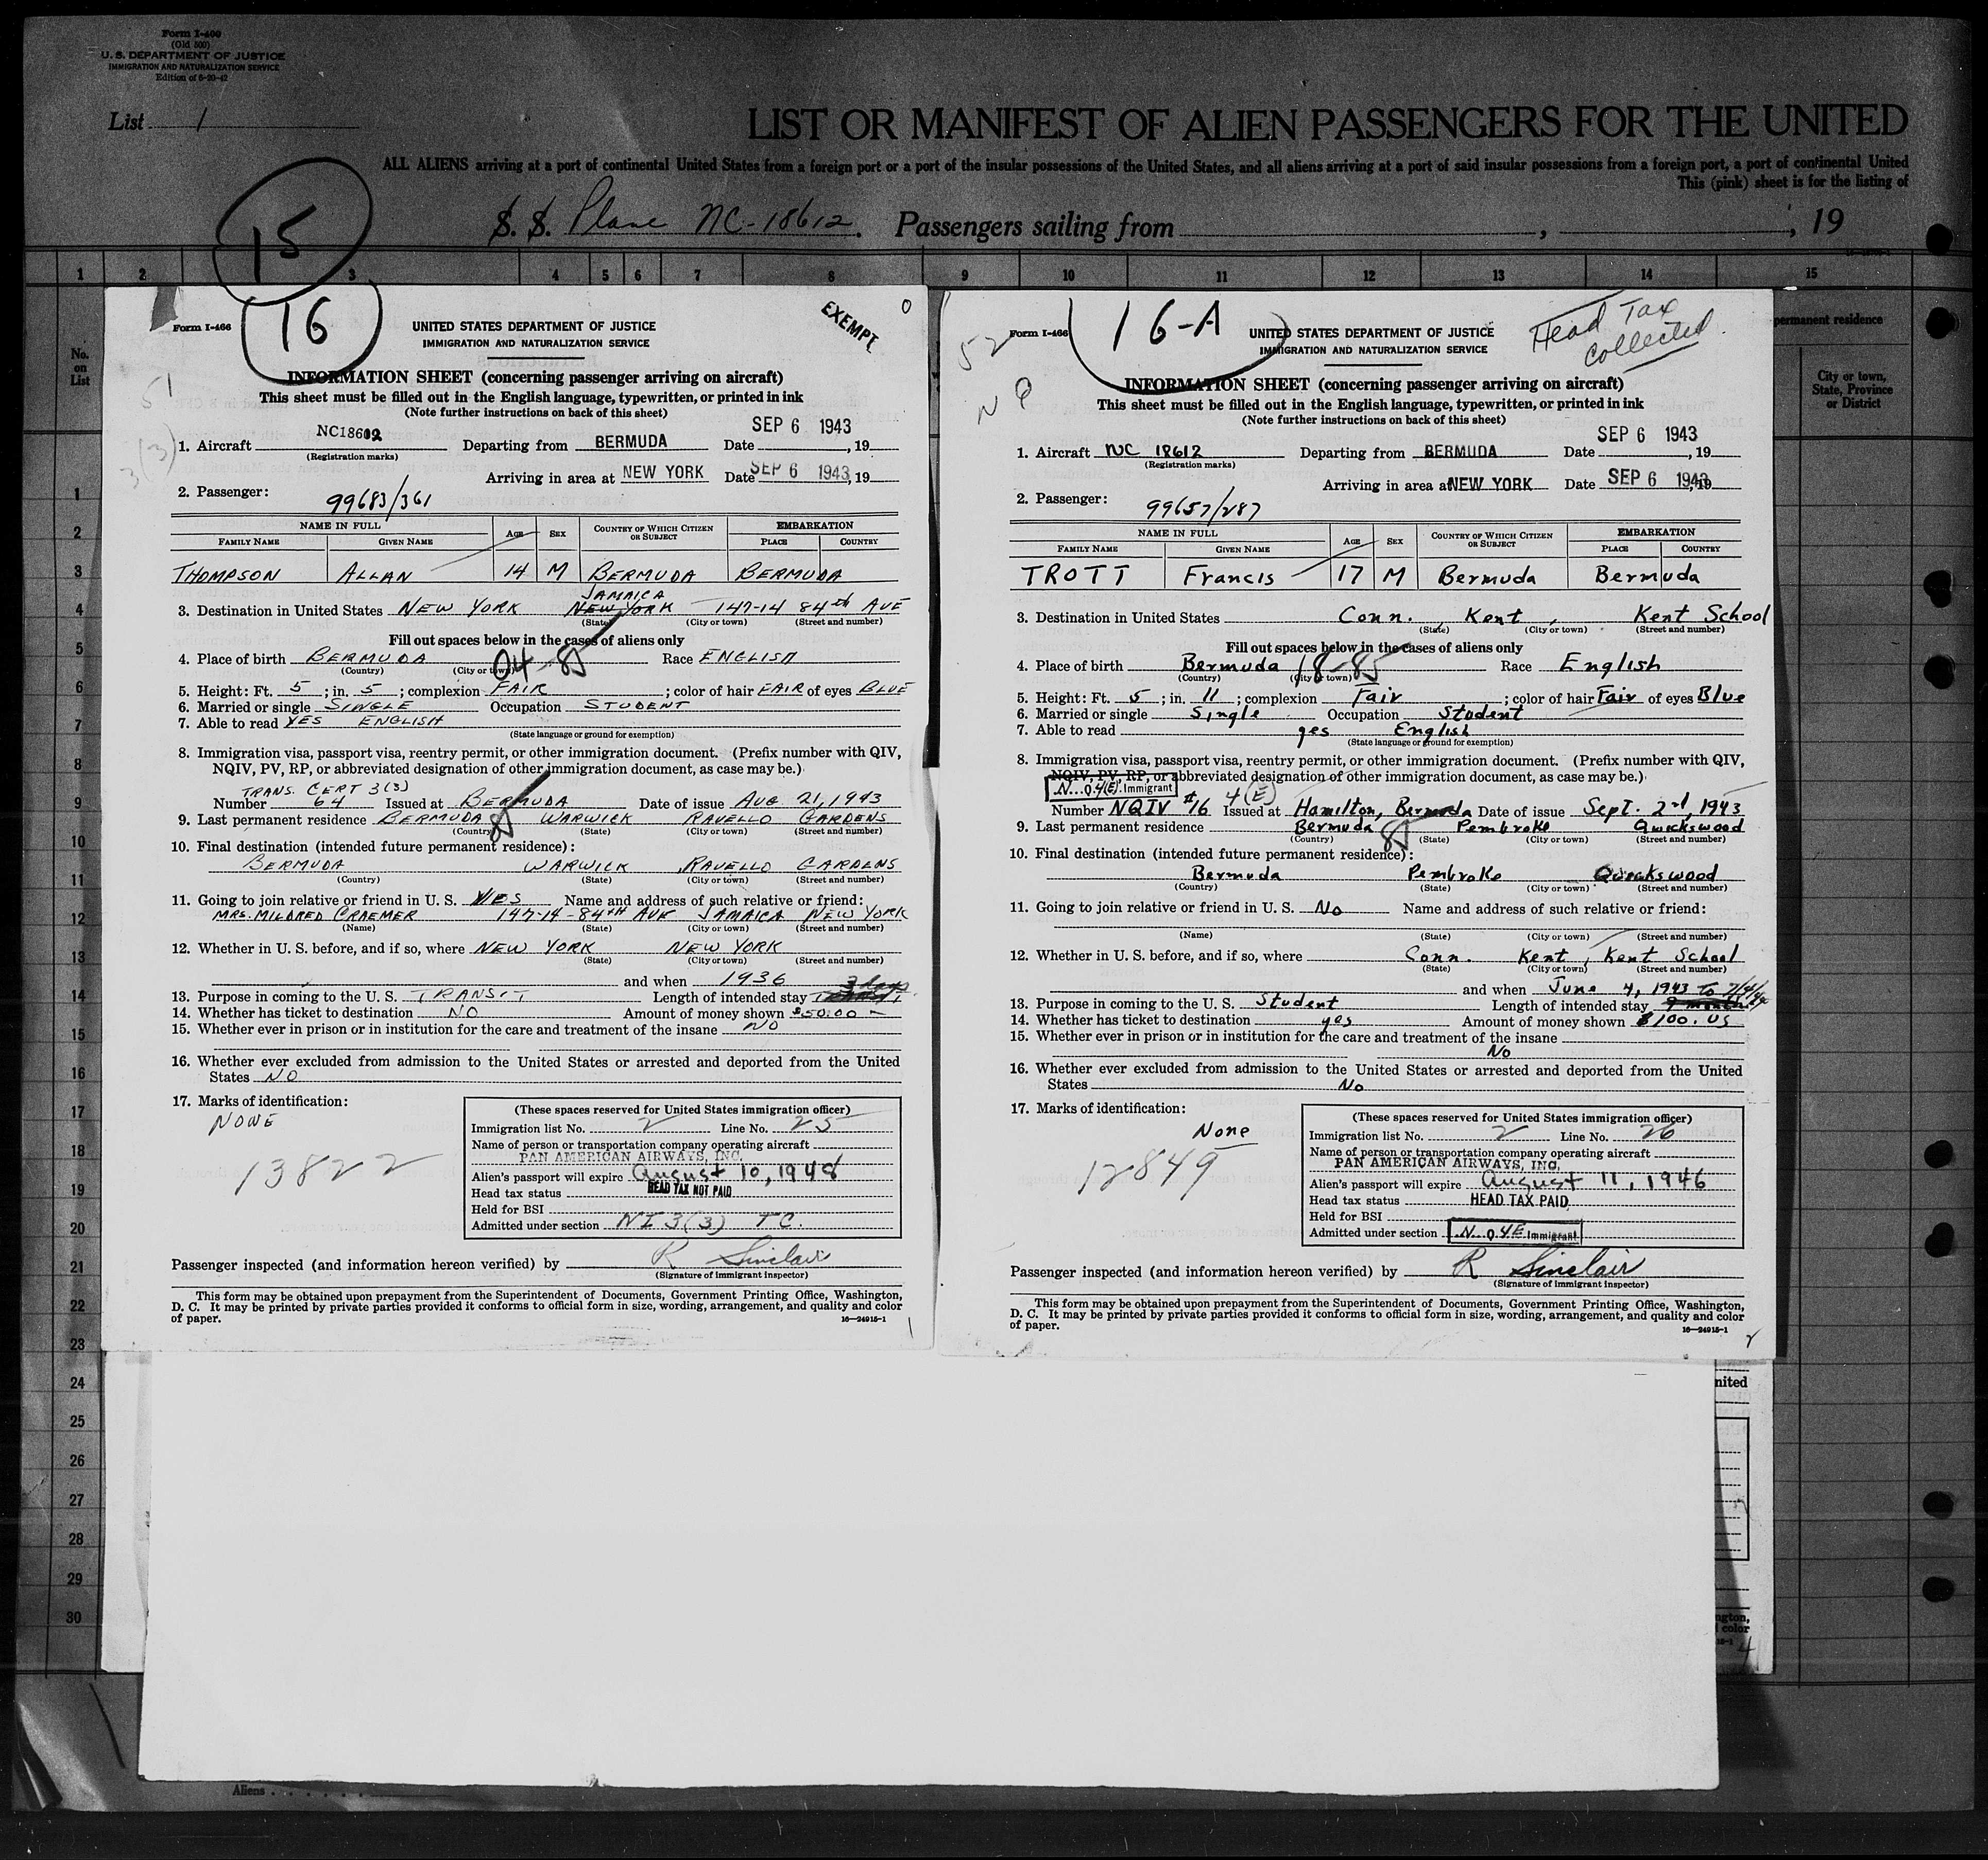 Form I-400
(Old 500)
U. S. DEPARTMENT OF JUSTICE
IMMIGRATION AND NATURALIZATION SERVICE
Edition of 5-20-42
List 1
LIST OR MANIFEST OF ALIEN PASSENGERS FOR THE UNITED
ALL ALIENS arriving at a port of continental United States from a foreign port or a port of the insular possessions of the United States, and all aliens arriving at a port of said insular possessions from a foreign port, a port of continental United
This (pink) sheet is for the listing of
15
S. S. Plane NC-18612. Passengers sailing from , , 19
1 2 3 4 5 6 7 8 9 10 11 12 13 14 15
No. on List
permanent residence
City or town, State, Province or District
1
2
3
4
5
6
7
8
9
10
11
12
13
14
15
16
17
18
19
20
21
22
23
24
25
26
27
28
29
30
Form I-466
16
EXEMPT
0
UNITED STATES DEPARTMENT OF JUSTICE
IMMIGRATION AND NATURALIZATION SERVICE
51
3(3)
INFORMATION SHEET (concerning passenger arriving on aircraft)
This sheet must be filled out in the English language, typewritten, or printed in ink
(Note further instructions on back of this sheet)
1. Aircraft NC18612 Departing from BERMUDA Date SEP 6 1943, 19
(Registration marks)
Arriving in area at NEW YORK Date SEP 6 1943, 19
2. Passenger: 99683/361
NAME IN FULL AGE SEX COUNTRY OF WHICH CITIZEN OR SUBJECT EMBARKATION
FAMILY NAME GIVEN NAME PLACE COUNTRY
THOMPSON ALLAN 14 M BERMUDA BERMUDA
JAMAICA
3. Destination in United States NEW YORK NEW YORK 147-14 84th AVE
(State) (City or town) (Street and number)
Fill out spaces below in the cases of aliens only
4. Place of birth BERMUDA 04-85 Race ENGLISH
(Country) (City or town)
5. Height: Ft. 5; in. 5; complexion FAIR; color of hair FAIR of eyes BLUE
6. Married or single SINGLE Occupation STUDENT
7. Able to read YES ENGLISH
(State language or ground for exemption)
8. Immigration visa, passport visa, reentry permit, or other immigration document. (Prefix number with QIV,
NQIV, PV, RP, or abbreviated designation of other immigration document, as case may be.)
TRANS. CERT 3(3)
Number 64 Issued at BERMUDA Date of issue AUG 21, 1943
9. Last permanent residence BERMUDA 85 WARWICK RAVELLO GARDENS
(Country) (State) (City or town) (Street and number)
10. Final destination (intended future permanent residence):
BERMUDA WARWICK RAVELLO GARDENS
(Country) (State) (City or town) (Street and number)
11. Going to join relative or friend in U. S. YES Name and address of such relative or friend:
MRS. MILDRED CRAEMER 147-14-84TH AVE JAMAICA NEW YORK
(Name) (State) (City or town) (Street and number)
12. Whether in U. S. before, and if so, where NEW YORK NEW YORK
(State) (City or town) (Street and number)
and when 1936
3 days
13. Purpose in coming to the U. S. TRANSIT Length of intended stay
14. Whether has ticket to destination NO Amount of money shown $50.00 -
15. Whether ever in prison or in institution for the care and treatment of the insane NO
16. Whether ever excluded from admission to the United States or arrested and deported from the United
States NO
17. Marks of identification:
NONE
13822
(These spaces reserved for United States immigration officer)
Immigration list No. 2 Line No. 25
Name of person or transportation company operating aircraft
PAN AMERICAN AIRWAYS, INC.
Alien's passport will expire August 10, 1948
Head tax status HEAD TAX NOT PAID
Held for BSI
Admitted under section NI 3(3) TC.
Passenger inspected (and information hereon verified) by R Sinclair
(Signature of immigrant inspector)
This form may be obtained upon prepayment from the Superintendent of Documents, Government Printing Office, Washington,
D. C. It may be printed by private parties provided it conforms to official form in size, wording, arrangement, and quality and color
of paper.
16—24915-1
1
Form I-466
16-A
Head Tax collected
52
UNITED STATES DEPARTMENT OF JUSTICE
IMMIGRATION AND NATURALIZATION SERVICE
INFORMATION SHEET (concerning passenger arriving on aircraft)
This sheet must be filled out in the English language, typewritten, or printed in ink
(Note further instructions on back of this sheet)
1. Aircraft NC 18612 Departing from BERMUDA Date SEP 6 1943, 19
(Registration marks)
Arriving in area at NEW YORK Date SEP 6 1943, 19
2. Passenger: 99657/287
NAME IN FULL AGE SEX COUNTRY OF WHICH CITIZEN OR SUBJECT EMBARKATION
FAMILY NAME GIVEN NAME PLACE COUNTRY
TROTT Francis 17 M Bermuda Bermuda
3. Destination in United States Conn. Kent, Kent School
(State) (City or town) (Street and number)
Fill out spaces below in the cases of aliens only
4. Place of birth Bermuda 18-85 Race English
(Country) (City or town)
5. Height: Ft. 5; in. 11; complexion Fair; color of hair Fair of eyes Blue
6. Married or single Single Occupation Student
7. Able to read yes English
(State language or ground for exemption)
8. Immigration visa, passport visa, reentry permit, or other immigration document. (Prefix number with QIV,
NQIV, PV, RP, or abbreviated designation of other immigration document, as case may be.)
N...O.4(E). Immigrant
4(E)
Number NQIV #16 Issued at Hamilton, Bermuda Date of issue Sept. 2nd, 1943
9. Last permanent residence Bermuda 85 Pembroke Quickswood
(Country) (State) (City or town) (Street and number)
10. Final destination (intended future permanent residence):
Bermuda Pembroke Quickswood
(Country) (State) (City or town) (Street and number)
11. Going to join relative or friend in U. S. No Name and address of such relative or friend:
(Name) (State) (City or town) (Street and number)
12. Whether in U. S. before, and if so, where Conn. Kent, Kent School
(State) (City or town) (Street and number)
and when June 4, 1943 To 7/4/44
13. Purpose in coming to the U. S. Student Length of intended stay 9 months
14. Whether has ticket to destination yes Amount of money shown $100. US
15. Whether ever in prison or in institution for the care and treatment of the insane
No
16. Whether ever excluded from admission to the United States or arrested and deported from the United
States No
17. Marks of identification:
None
12849
(These spaces reserved for United States immigration officer)
Immigration list No. 2 Line No. 26
Name of person or transportation company operating aircraft
PAN AMERICAN AIRWAYS, INC.
Alien's passport will expire August 11, 1946
Head tax status HEAD TAX PAID
Held for BSI
Admitted under section N...O.4E Immigrant
Passenger inspected (and information hereon verified) by R Sinclair
(Signature of immigrant inspector)
This form may be obtained upon prepayment from the Superintendent of Documents, Government Printing Office, Washington,
D. C. It may be printed by private parties provided it conforms to official form in size, wording, arrangement, and quality and color
of paper.
16—24915-1
2
nited
ngton,
color
4
Aliens